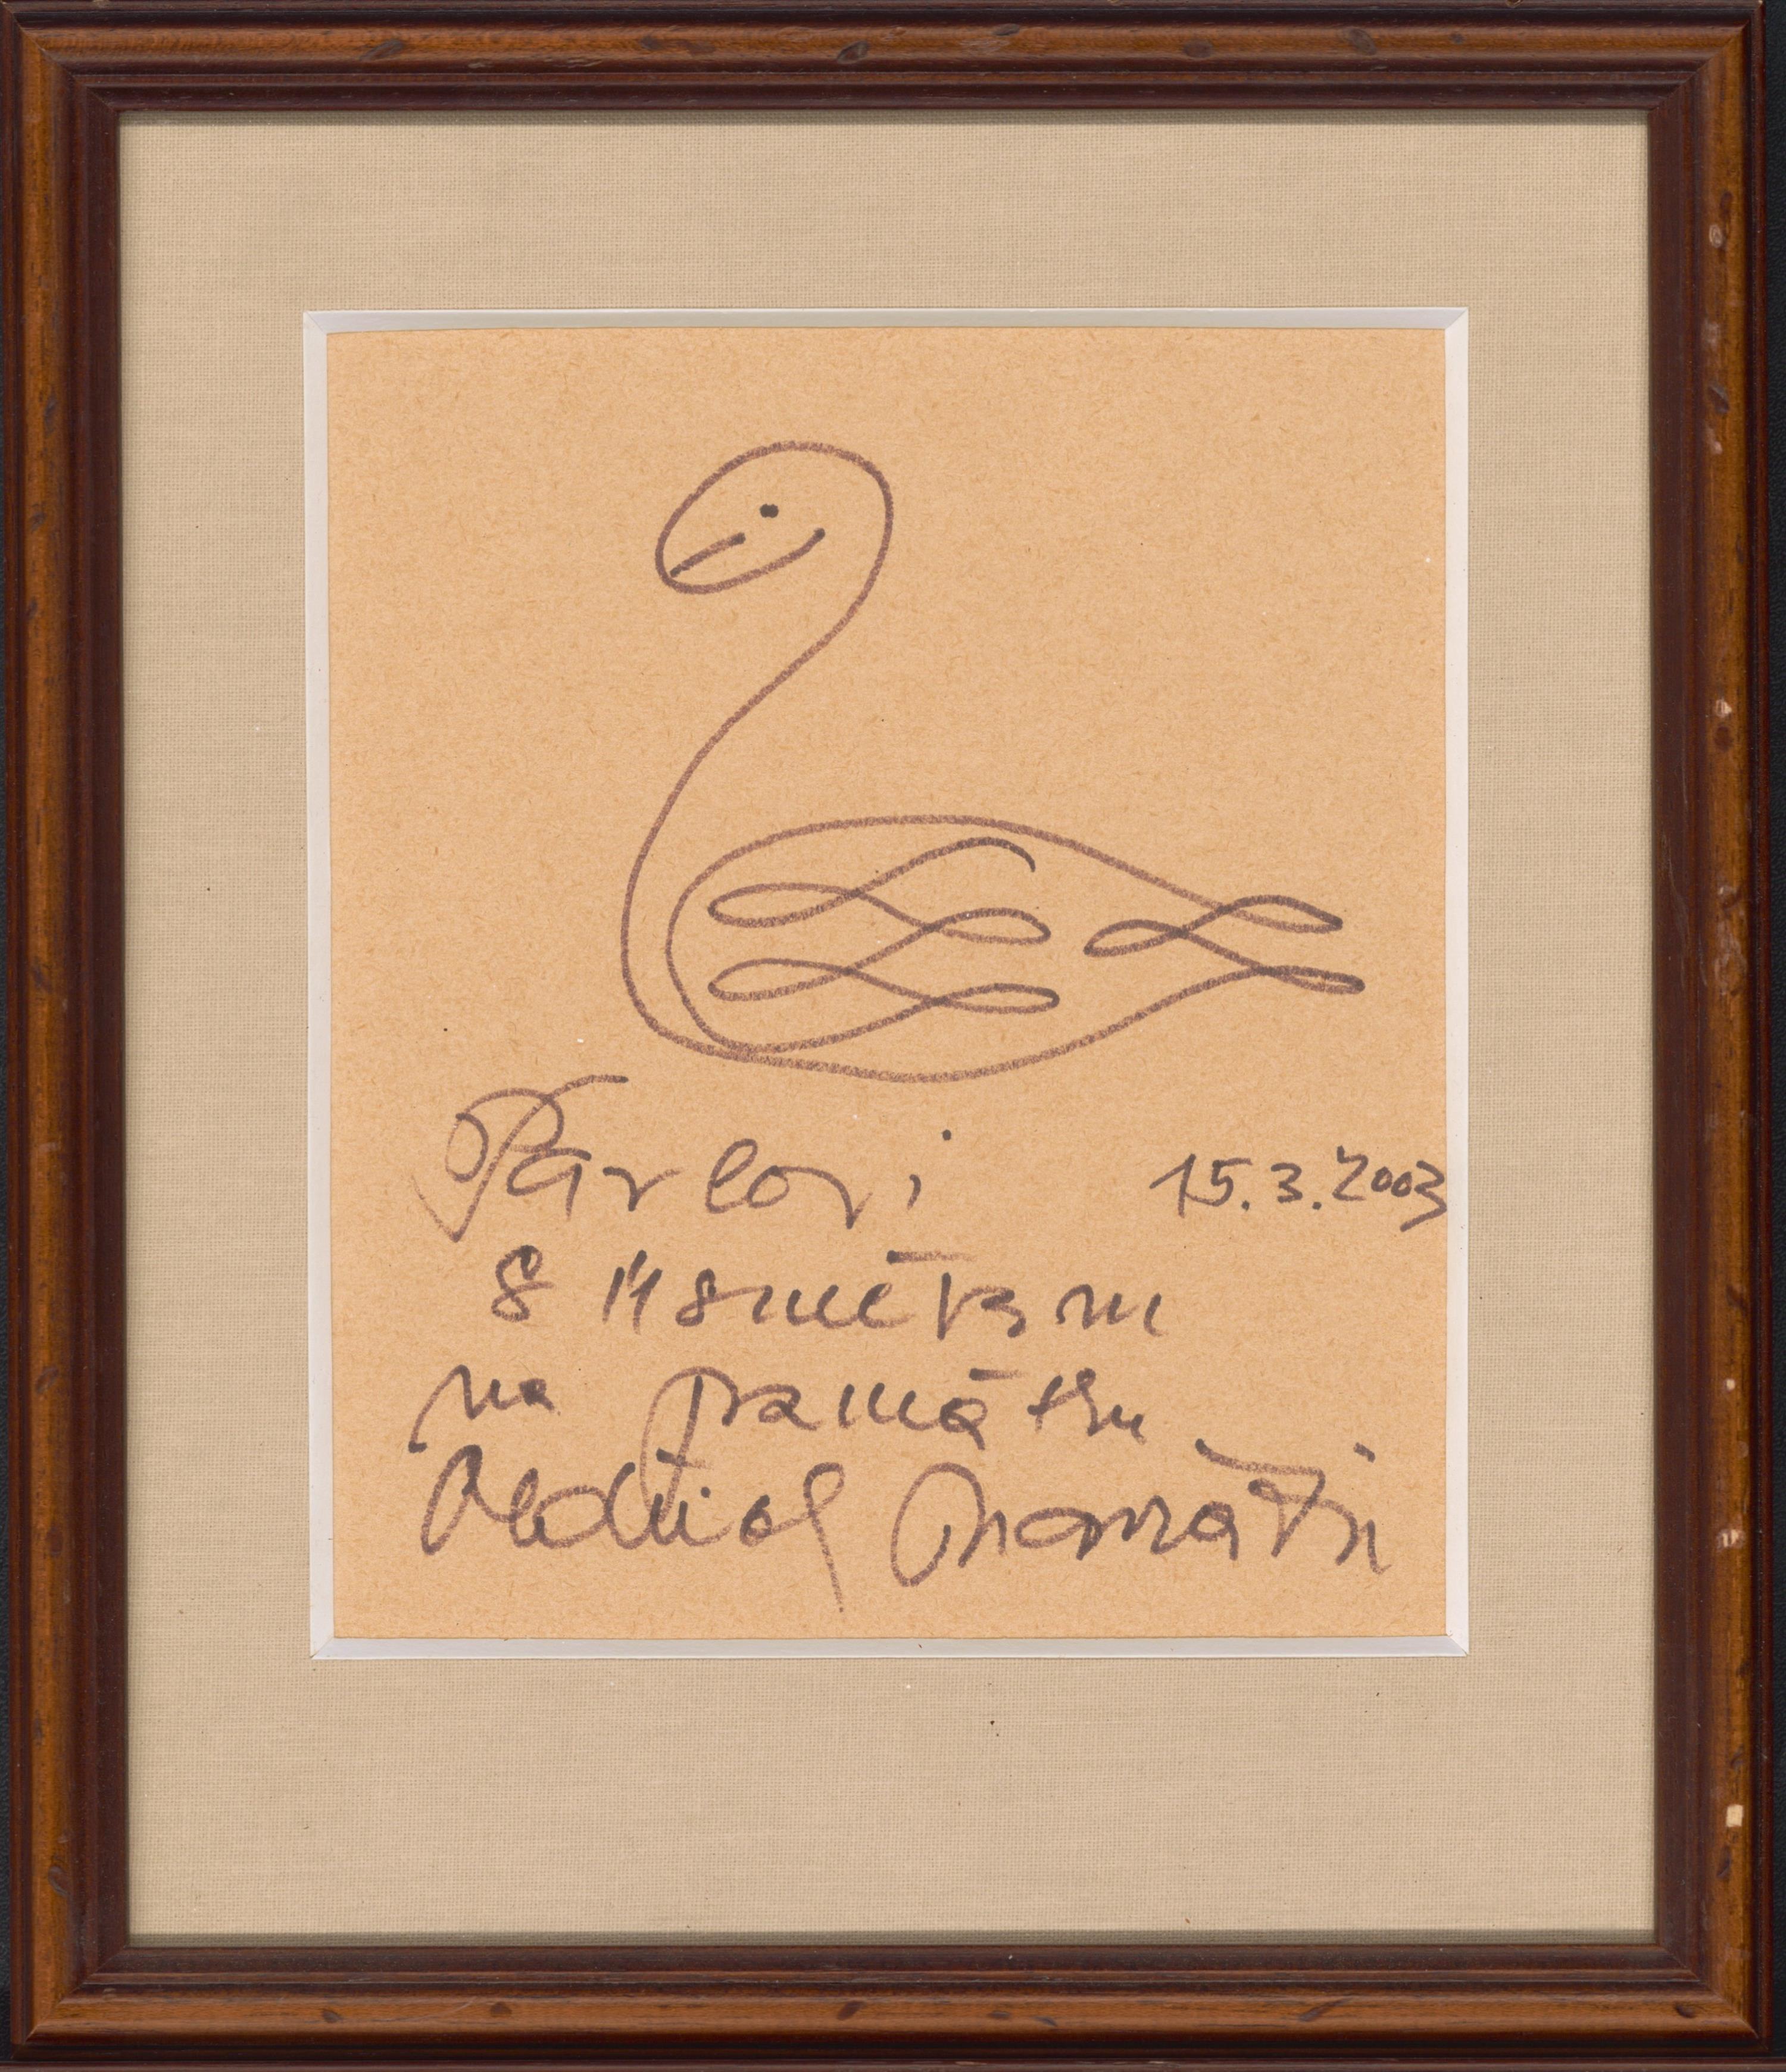 Pavlovi 15.3.2003
s úsměvem
na památku
Oldřich